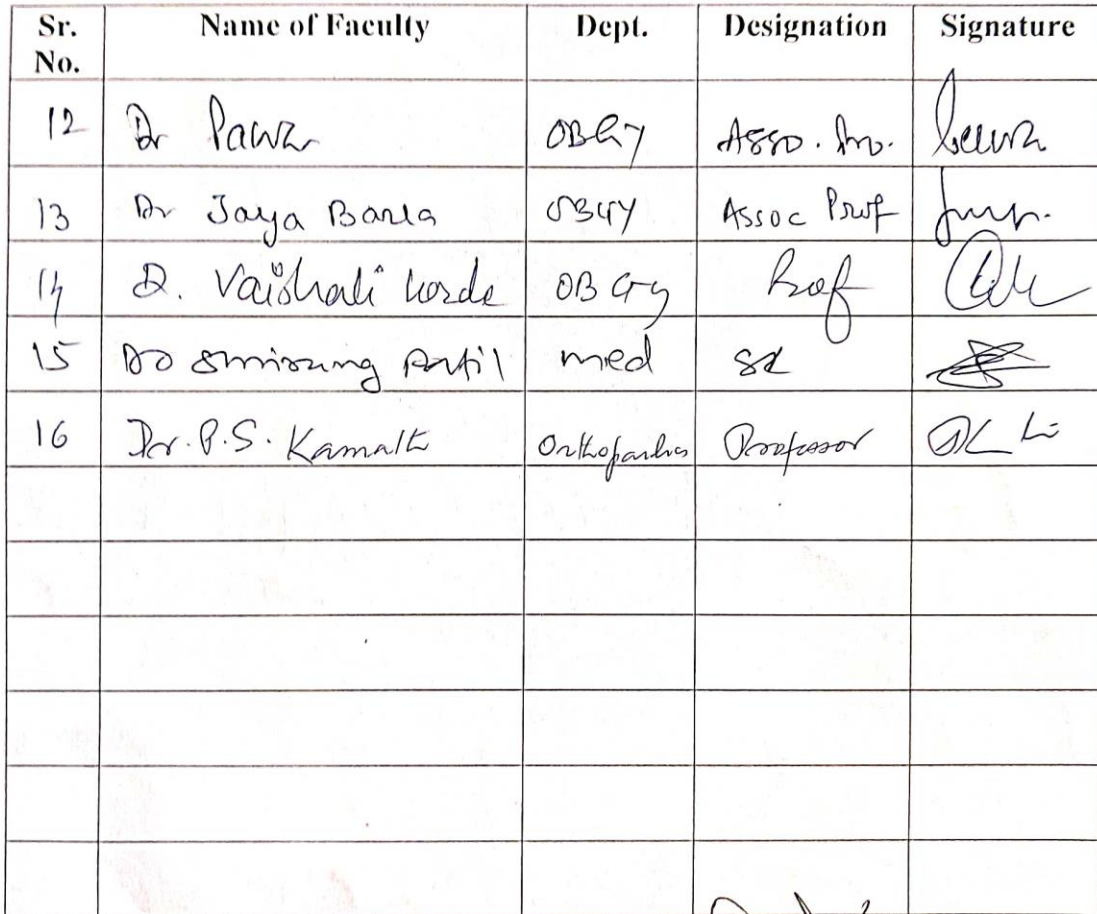 Sr. No. Name of Faculty Dept. Designation Signature
12 Dr Pawar OBGY Asso. Pro.
13 Dr Jaya Barla OBGY Assoc Prof
14 D. Vaishali Korde OBGY Prof
15 Patil med
16 Dr. P.S. Kamath Orthopaedics Professor